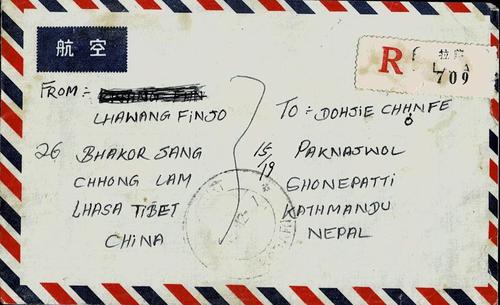 航空
R 拉萨
LHASA
709
FROM:-
LHAWANG FINJO
26 BHAKOR SANG
CHHONG LAM
LHASA TIBET
CHINA
15/19
TO:- DOHJIE CHHNFE
PAKNAJWOL
GHONEPATTI
KATHMANDU
NEPAL